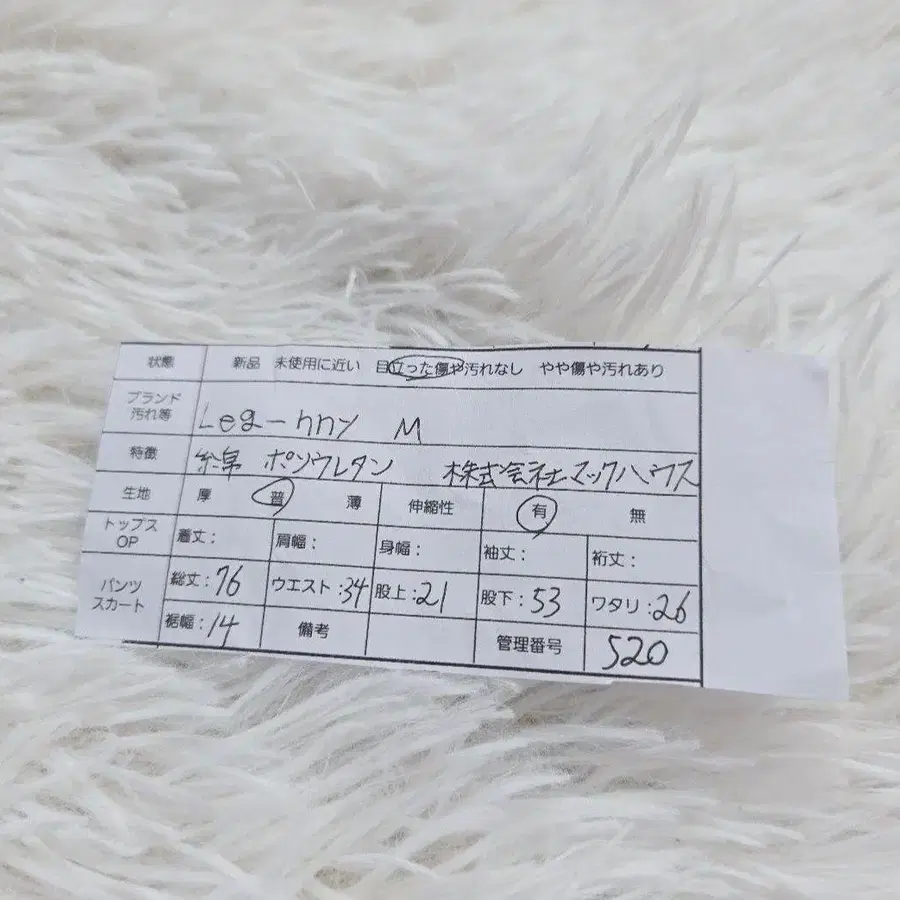 状態 新品 未使用に近い 目立った傷や汚れなし やや傷や汚れあり
ブランド
汚れ等 Leg-hny M
特徴 綿 ポリウレタン 株式会社マックハウス
生地 厚 普 薄 伸縮性 有 無
トップス
OP 着丈： 肩幅： 身幅： 袖丈： 裄丈：
パンツ
スカート 総丈：76 ウエスト：34 股上：21 股下：53 ワタリ：26
裾幅：14 備考 管理番号 520